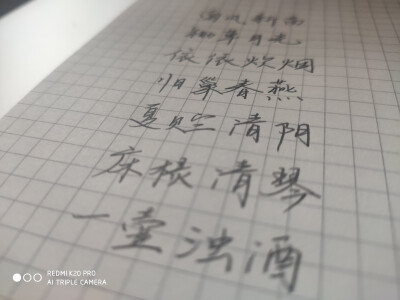 依依炊烟
归巢春燕
夏贮清阴
床根清琴
一壶浊酒
REDMI K20 PRO
AI TRIPLE CAMERA